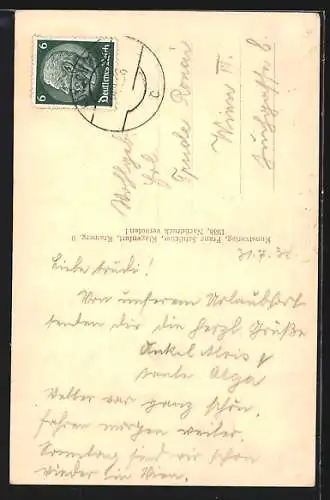 6 Deutsches Reich 6
Wohlgeb.
Frl.
Trude
Wien III.
Kunstverlag, Franz Schilcher, Klagenfurt,
1938, Nachdruck verboten!
31.7.38
Liebe Trudi!
Von unserem Urlaubsort
senden dir die herzl. Grüße
Onkel Alois &
Tante Olga
Wetter war ganz schön,
fahren morgen weiter.
Sonntag sind wir schon
wieder in Wien.